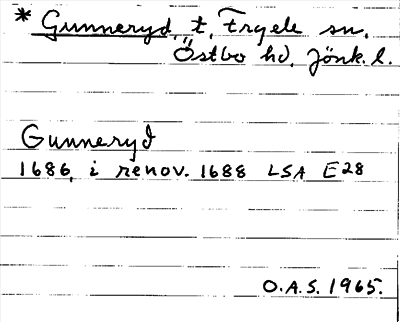 * Gunneryd, t. Fryele sn.
Östbo hd, Jönk. l.
Gunneryd
1686, i renov. 1688 LSA E28
O.A.S. 1965.